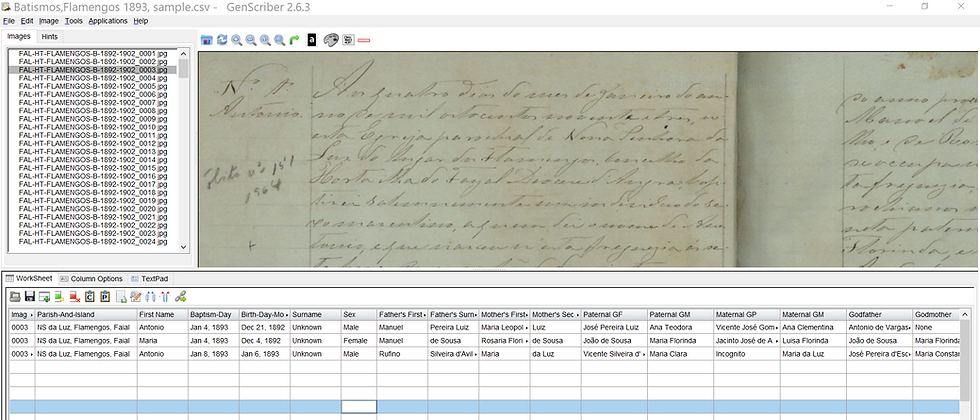 Batismos,Flamengos 1893, sample.csv - GenScriber 2.6.3
File Edit Image Tools Applications Help
Images Hints
FAL-HT-FLAMENGOS-B-1892-1902_0001.jpg
FAL-HT-FLAMENGOS-B-1892-1902_0002.jpg
FAL-HT-FLAMENGOS-B-1892-1902_0003.jpg
FAL-HT-FLAMENGOS-B-1892-1902_0004.jpg
FAL-HT-FLAMENGOS-B-1892-1902_0005.jpg
FAL-HT-FLAMENGOS-B-1892-1902_0006.jpg
FAL-HT-FLAMENGOS-B-1892-1902_0007.jpg
FAL-HT-FLAMENGOS-B-1892-1902_0008.jpg
FAL-HT-FLAMENGOS-B-1892-1902_0009.jpg
FAL-HT-FLAMENGOS-B-1892-1902_0010.jpg
FAL-HT-FLAMENGOS-B-1892-1902_0011.jpg
FAL-HT-FLAMENGOS-B-1892-1902_0012.jpg
FAL-HT-FLAMENGOS-B-1892-1902_0013.jpg
FAL-HT-FLAMENGOS-B-1892-1902_0014.jpg
FAL-HT-FLAMENGOS-B-1892-1902_0015.jpg
FAL-HT-FLAMENGOS-B-1892-1902_0016.jpg
FAL-HT-FLAMENGOS-B-1892-1902_0017.jpg
FAL-HT-FLAMENGOS-B-1892-1902_0018.jpg
FAL-HT-FLAMENGOS-B-1892-1902_0019.jpg
FAL-HT-FLAMENGOS-B-1892-1902_0020.jpg
FAL-HT-FLAMENGOS-B-1892-1902_0021.jpg
FAL-HT-FLAMENGOS-B-1892-1902_0022.jpg
FAL-HT-FLAMENGOS-B-1892-1902_0023.jpg
FAL-HT-FLAMENGOS-B-1892-1902_0024.jpg
Antonio
Aos quatro dias do mez de Janeiro do an-
no de mil oitocentos noventa e tres, n'
esta Egreja parochial de Nossa Senhora da
Luz do lugar dos Flamengos, concelho da
Horta Ilha do Fayal Diocese d'Angra, bap-
tizei solemnemente um individuo do se-
xo masculino, a quem dei o nome de An-
tonio, e que nasceu n'esta freguezia
1964
Manoel de
WorkSheet Column Options TextPad
Imag Parish-And-Island First Name Baptism-Day Birth-Day-Mo Surname Sex Father's First Father's Surn Mother's First Mother's Sec Paternal GF Paternal GM Maternal GP Maternal GM Godfather Godmother
0003 NS da Luz, Flamengos, Faial Antonio Jan 4, 1893 Dec 21, 1892 Unknown Male Manuel Pereira Luiz Maria Leopol Luiz José Pereira Luiz Ana Teodora Vicente José Gom Ana Clementina Antonio de Vargas None
0003 NS da Luz, Flamengos, Faial Maria Jan 4, 1893 Dec 4, 1892 Unknown Female Manuel de Sousa Rosaria Flori de Sousa João de Sousa Maria Florinda Jacinto José de A Luisa Florinda João de Sousa Maria Florinda
0003 NS da Luz, Flamengos, Faial Antonio Jan 8, 1893 Jan 6, 1893 Unknown Male Rufino Silveira d'Avil Maria da Luz Vicente Silveira d' Maria Clara Incognito Maria da Luz José Pereira d'Esc Maria Constan